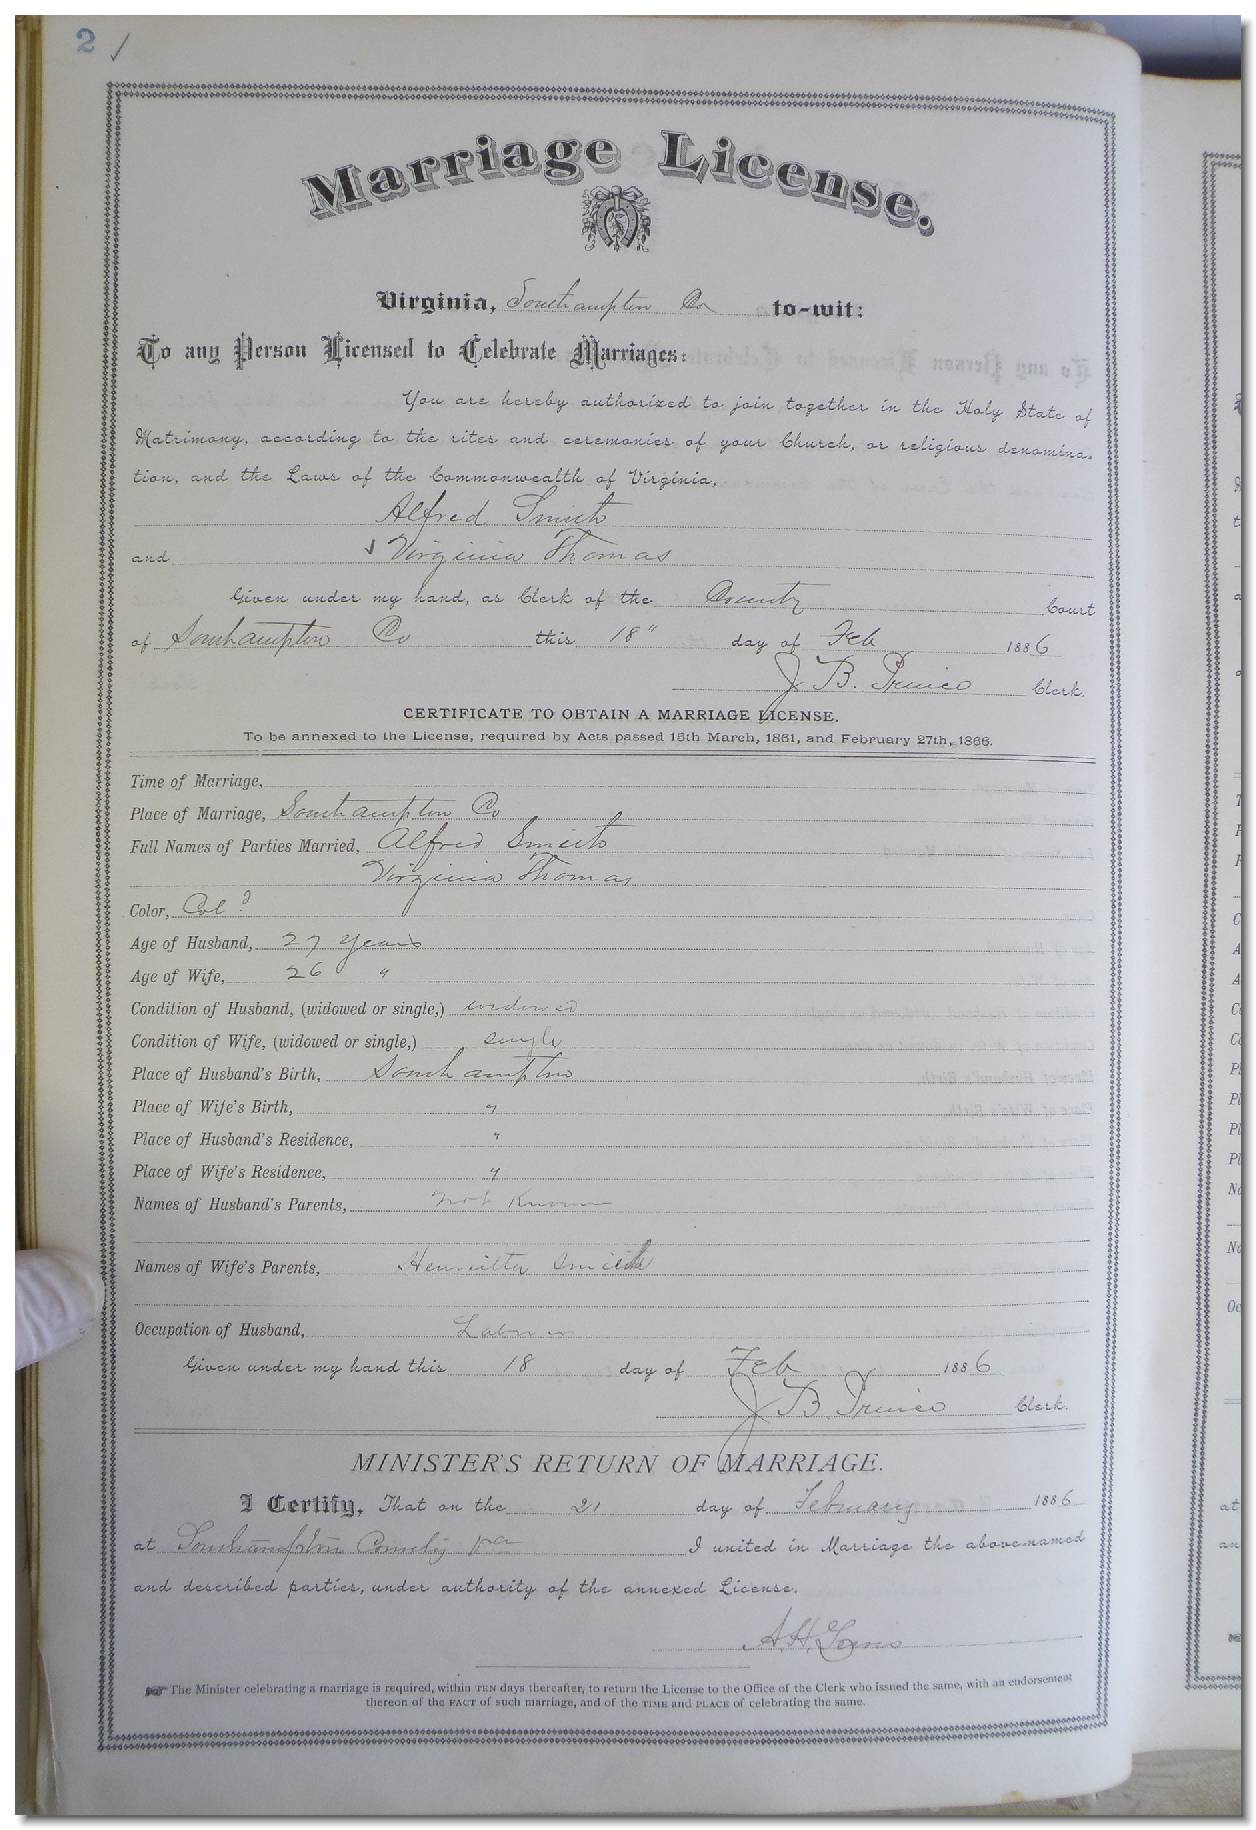 2 ✓
Marriage License.
Virginia, Southampton Co to-wit:
To any Person Licensed to Celebrate Marriages:
You are hereby authorized to join together in the Holy State of
Matrimony, according to the rites and ceremonies of your Church, or religious denomina-
tion, and the Laws of the Commonwealth of Virginia,
Alfred Smith
and ✓ Virginia Thomas
Given under my hand, as Clerk of the County Court
of Southampton Co this 18" day of Feb 1886
J. B. Prince Clerk.
CERTIFICATE TO OBTAIN A MARRIAGE LICENSE.
To be annexed to the License, required by Acts passed 15th March, 1861, and February 27th, 1866.
Time of Marriage,
Place of Marriage, Southampton Co
Full Names of Parties Married, Alfred Smith
Virginia Thomas
Color, Col d
Age of Husband, 27 years
Age of Wife, 26 "
Condition of Husband, (widowed or single,) widowed
Condition of Wife, (widowed or single,) single
Place of Husband's Birth, Southampton
Place of Wife's Birth, "
Place of Husband's Residence, "
Place of Wife's Residence, "
Names of Husband's Parents, not Known
Names of Wife's Parents, Smith
Occupation of Husband, Laborer
Given under my hand this 18 day of Feb 1886
J. B. Prince Clerk.
MINISTER'S RETURN OF MARRIAGE.
I Certify, That on the 21 day of February 1886
at Southampton County Va I united in Marriage the above-named
and described parties, under authority of the annexed License.
A. H.
The Minister celebrating a marriage is required, within TEN days thereafter, to return the License to the Office of the Clerk who issued the same, with an endorsement
thereon of the FACT of such marriage, and of the TIME and PLACE of celebrating the same.